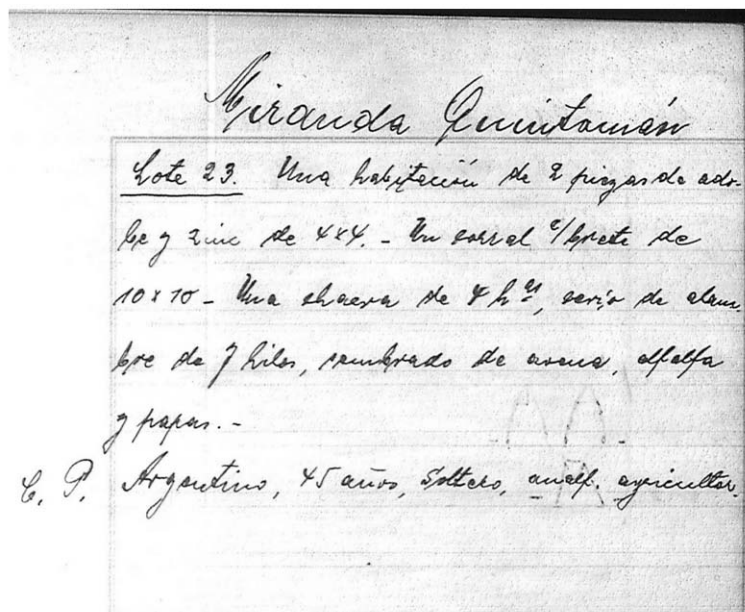 Miranda Quintomán
Lote 23. Una habitación de 2 piezas de ado-
be y zinc de 4x4. - Un corral c/brete de
10 x 10 - Una chacra de 4 has, cerco de alam-
bre de 7 hilos, sembrado de avena, alfalfa
y papas. -
C. P. Argentino, 45 años, Soltero, analf. agricultor.